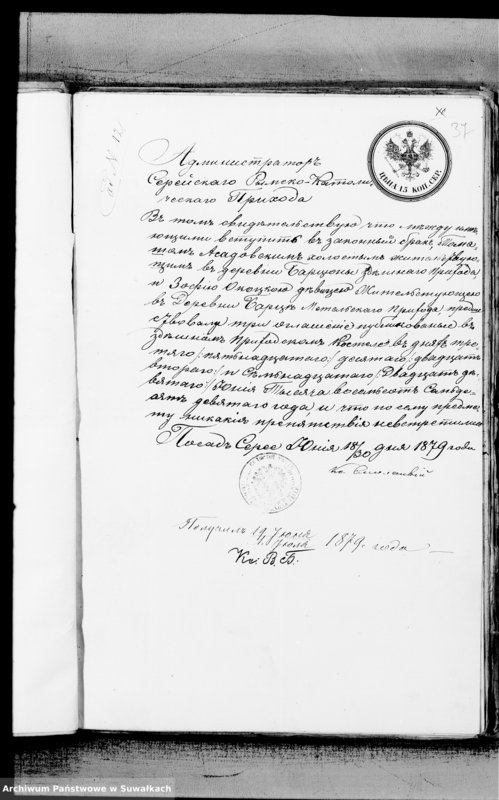 37
ad № 12
ЦѢНА 15 КОП. СЕР.
Администраторъ
Серейскаго Римско-Католи-
ческаго Прихода
Въ томъ свидѣтельствую что между имѣ-
ющими вступить въ законный бракъ Тома-
шомъ Асадовскимъ холостымъ жительствую-
щимъ въ деревни здѣшнаго Прихода
и Зофіею Оноцкою дѣвицею Жительствующею
въ Деревни Метельскаго Прихода предше-
ствовали три оглашенія публикованые въ
здѣшнемъ Приходскомъ Костелѣ въ дняхъ тре-
тяго /: пятьнадцатаго :/ десятаго /: двадцать
втораго :/ и Семьнадцатаго /: Двадцать де-
вятаго :/ Юнія Тысяча восемьсотъ Семьде-
сятъ девятаго года и что по сему предме-
ту никакія препятствія невстретились
Посадъ Серее Юнія 18/30 дня 1879 года
Кс.
Получилъ 19 Юня / 1 Юля 1879 года
Кс. В. Б.
Archiwum Państwowe w Suwałkach